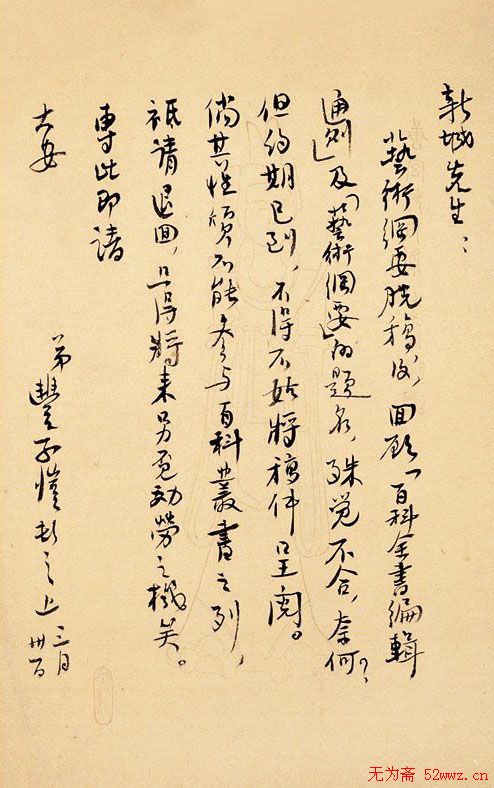 新城先生：
藝術綱要脱稿後，回顧「百科全書編輯
通則」及「藝術綱要」的題名，殊覚不合，奈何？
但約期已到，不得不姑將稿件呈閱。
倘其性質不能參与百科叢書之列，
祗請退回，且待將来另覓効勞之機矣。
專此即請
大安
弟豐子愷頓上
三月
卅日
无为斋 52wwz.cn